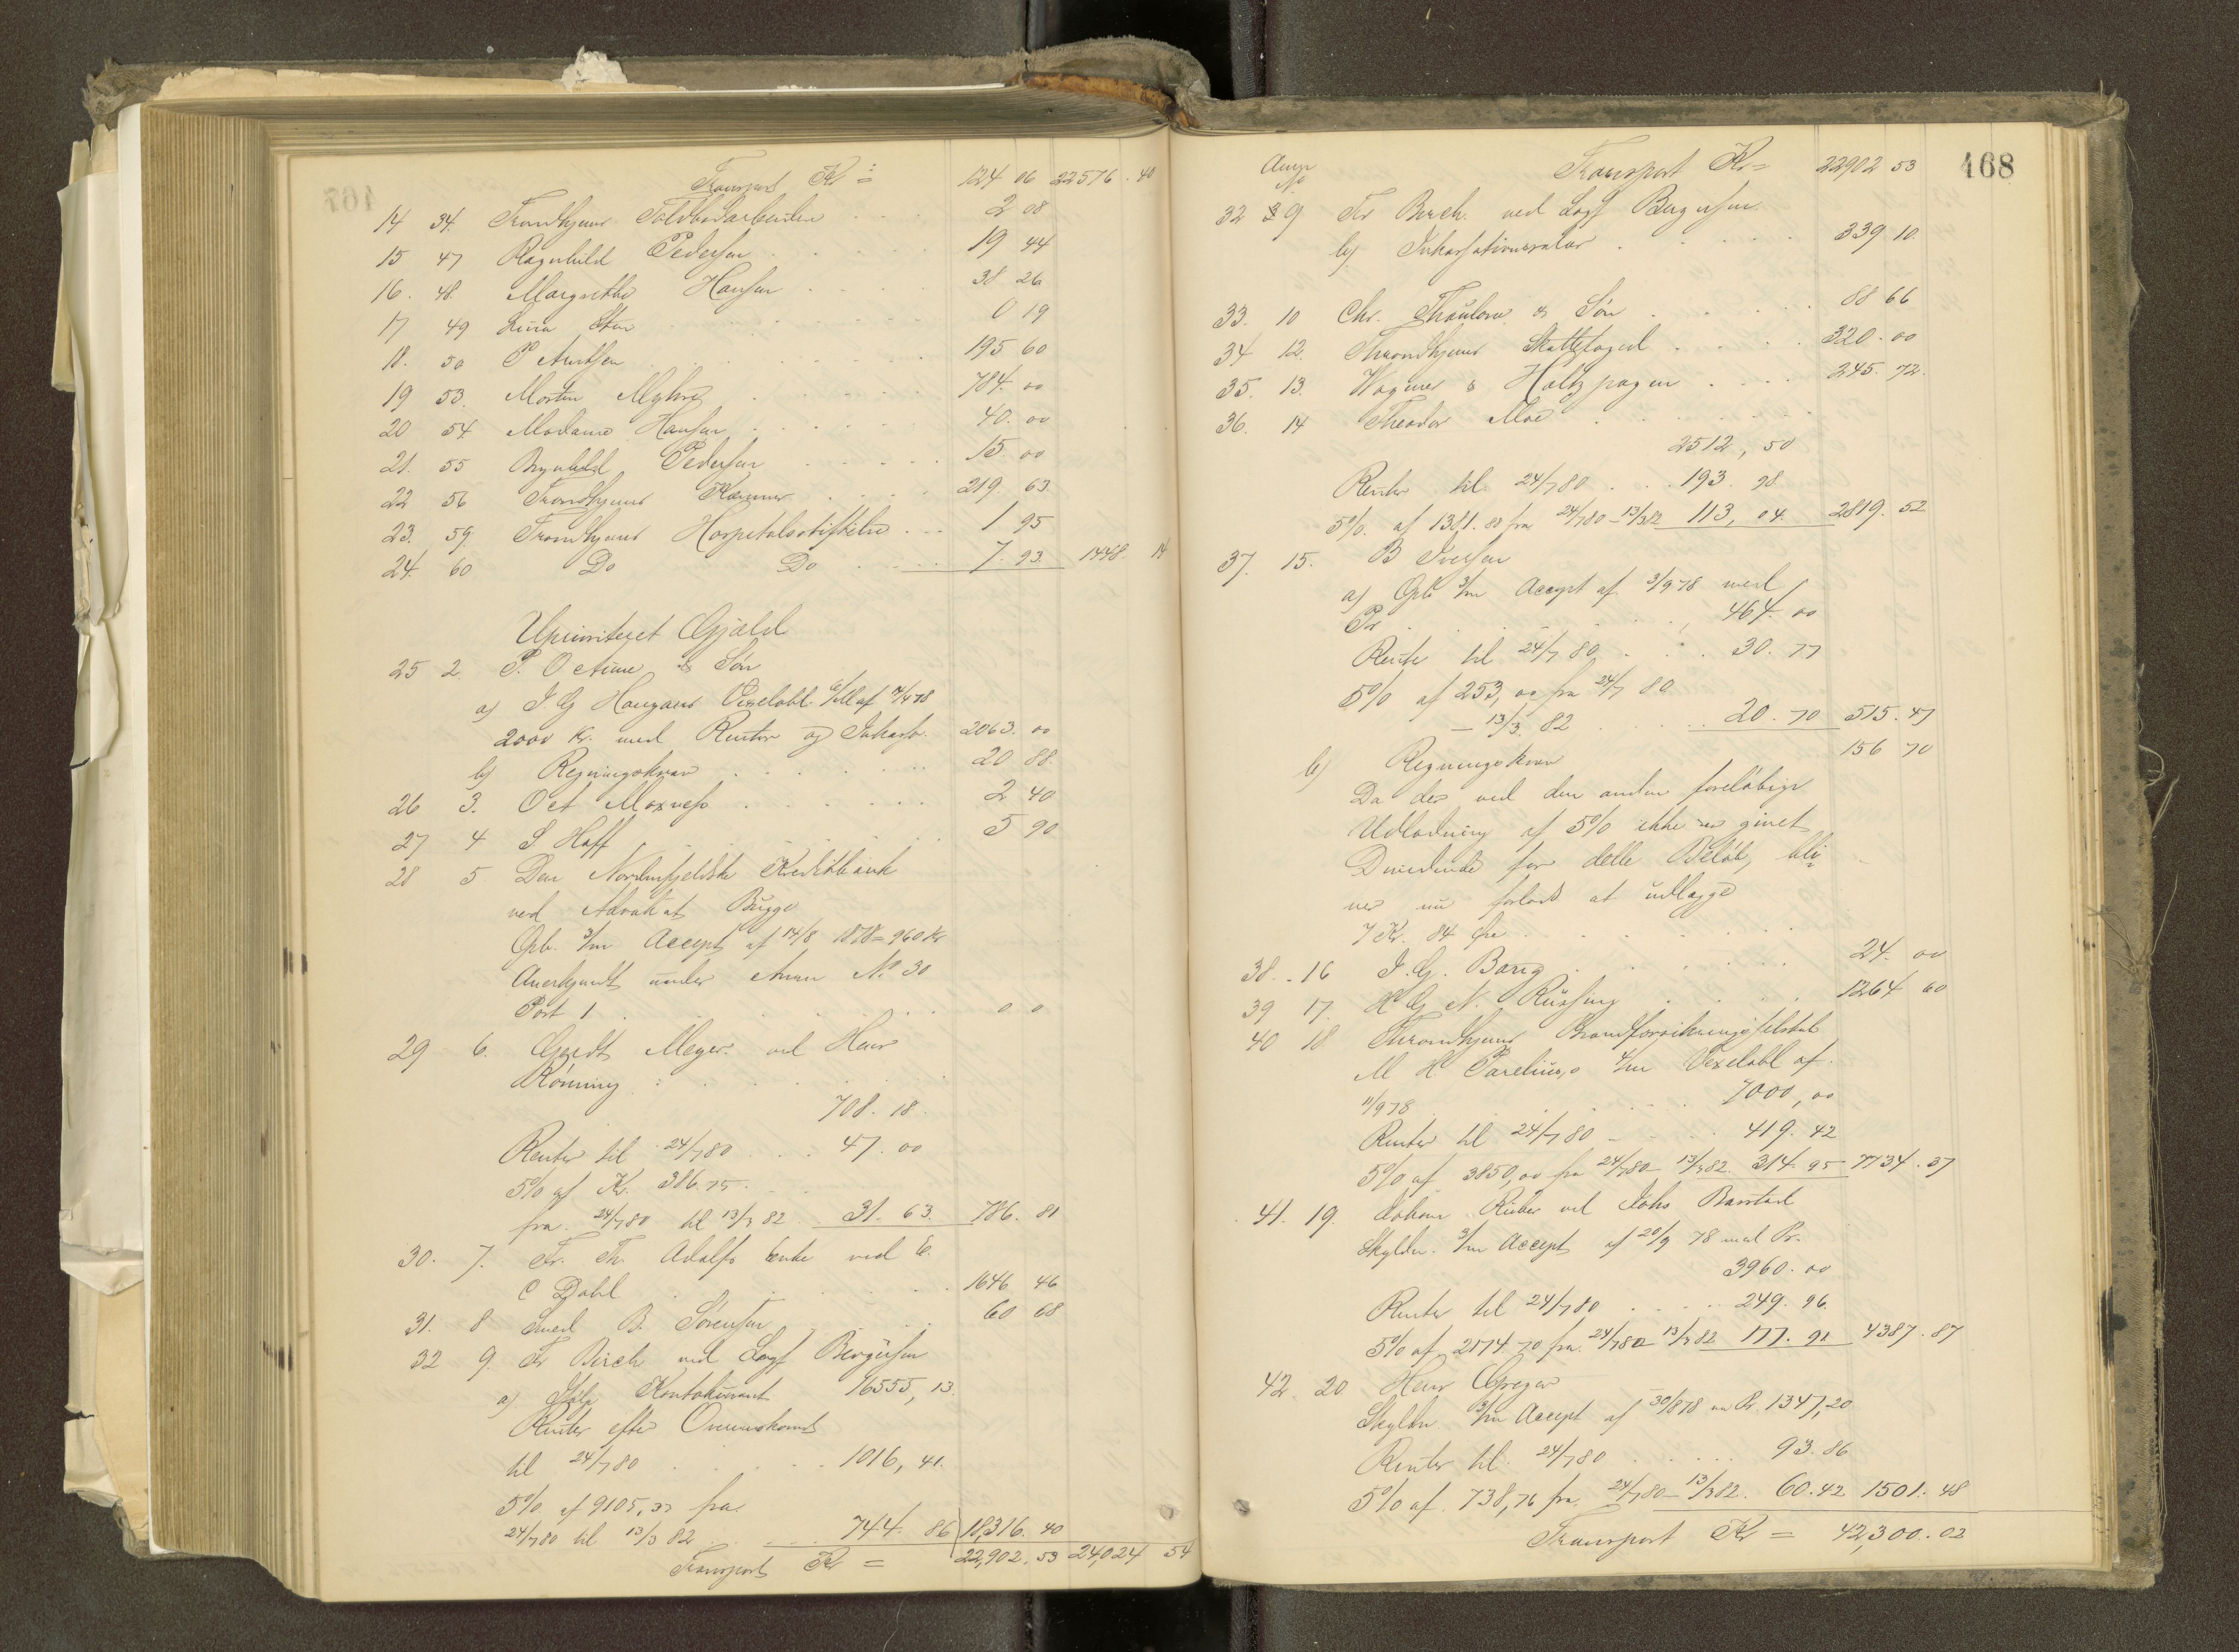 Transport Kr = 124 06 22576. 40
14 34. Trondhjems Toldbodarbeidere 2 08
15 47 Ragnhild Pedersen 19 44
16. 48. Margrethe Hansen 38 26
17 49 Lina 0 19
18. 50 P Arntsen 195 60
19 53. Morten Myhre 784. 00
20 54 Madame Hansen 40. 00
21. 55 Brynhild Pedersen 15. 00
22 56 Trondhjems Kemner 219. 63
23. 59. Trondhjems Hospitalsstiftelse 1 95
24. 60 Do Do 7. 93. 1448. 14
Uprioriteret Gjæld
25 2. P. O & Søn
a) I G Vexelobl. af 78
2000 Kr. med Renter og 2063. 00
b) Regningskrav 20 88.
26 3. Oct Moxness 2 40
27 4 S Hoff 5 90
28 5. Den Nordenfjeldske Kreditbank
ved Advokat Bugge
Opb. 3/m Accept af 14/8 1878 = 960 Kr
Anerkjendt under Anm No 30
Post 1 0 0
29 6. Meyer ved Henr
Rönning
708. 18.
Renter til 24/7 80 47. 00
5% af Kr. 386.75.
fra 24/7 80 til 13/3 82 31. 63. 786. 81
30. 7. Fr. Th. Adolfs Enke ved E.
C Dahl 1646 46
31. 8 Smed B. Sørensen 60 68
32 9. Fr Birch ved Sagf Bergersen
a) Kontokurant 16555, 13.
Renter efter Overenskomst
til 24/7 80 1016, 41.
5% af 9105,37 fra
24/7 80 til 13/3 82 744. 86 18,316. 40
Transport Kr = 22,902. 53 24,024 54
168
Anm
No Transport Kr = 22902 53
32 9 Fr Birch ved Sagf Bergersen
b) Inkassationssalær 339 10.
33. 10 Chr. Thaulow & Søn 88 66
34 12. Throndhjems Skattefoged 320. 00
35. 13. Wagner & Holtzpagen 245. 72.
36. 14 Theodor Moe
2512, 50
Renter til 24/7 80 193. 98
5%. af 1381.88 fra 24/7 80 - 13/3 82 113, 04. 2819. 52
37. 15. B Iversen
a) Opb 3/m Accept af 3/9 78 med
Pr 464. 00
Rente til 24/7 80 30. 77
5% af 253,00 fra 24/7 80
- 13/3 82 20. 70 515. 47
b) Regningskrav 156 70
Da der ved den anden foreløbige
Udlodning af 5% ikke er givet
Dividende for dette Beløb, bli=
ver nu forlods at udlægge
7 Kr. 84 Øre
38. 16 I. G. Bang 24. 00
39 17. H G N. Rüssing 1264 60
40 18 Throndhjems Brandforsikringsselskab
M H Parelius,s 4/m Vexelobl af
11/9 78 7000, 00
Renter til 24/7 80 419. 42
5% af 3850,00 fra 24/7 80 - 13/3 82. 314. 95 7734. 37
41. 19. Johan Rieber ved Johs Baustad
Skyldn. 3/m Accept af 20/9 78 med Pr.
3960. 00
Renter til 24/7 80 249. 96.
5% af 2174.70 fra 24/7 80 - 13/3 82 177. 91 4387. 87
42. 20 Henr
Skyldn 3/m Accept af 30/8 78 m Pr. 1347,20
Renter til 24/7 80 93. 86
5% af 738,76 fra 24/7 80 - 13/3 82. 60. 42 1501. 48
Transport Kr = 42,300. 02